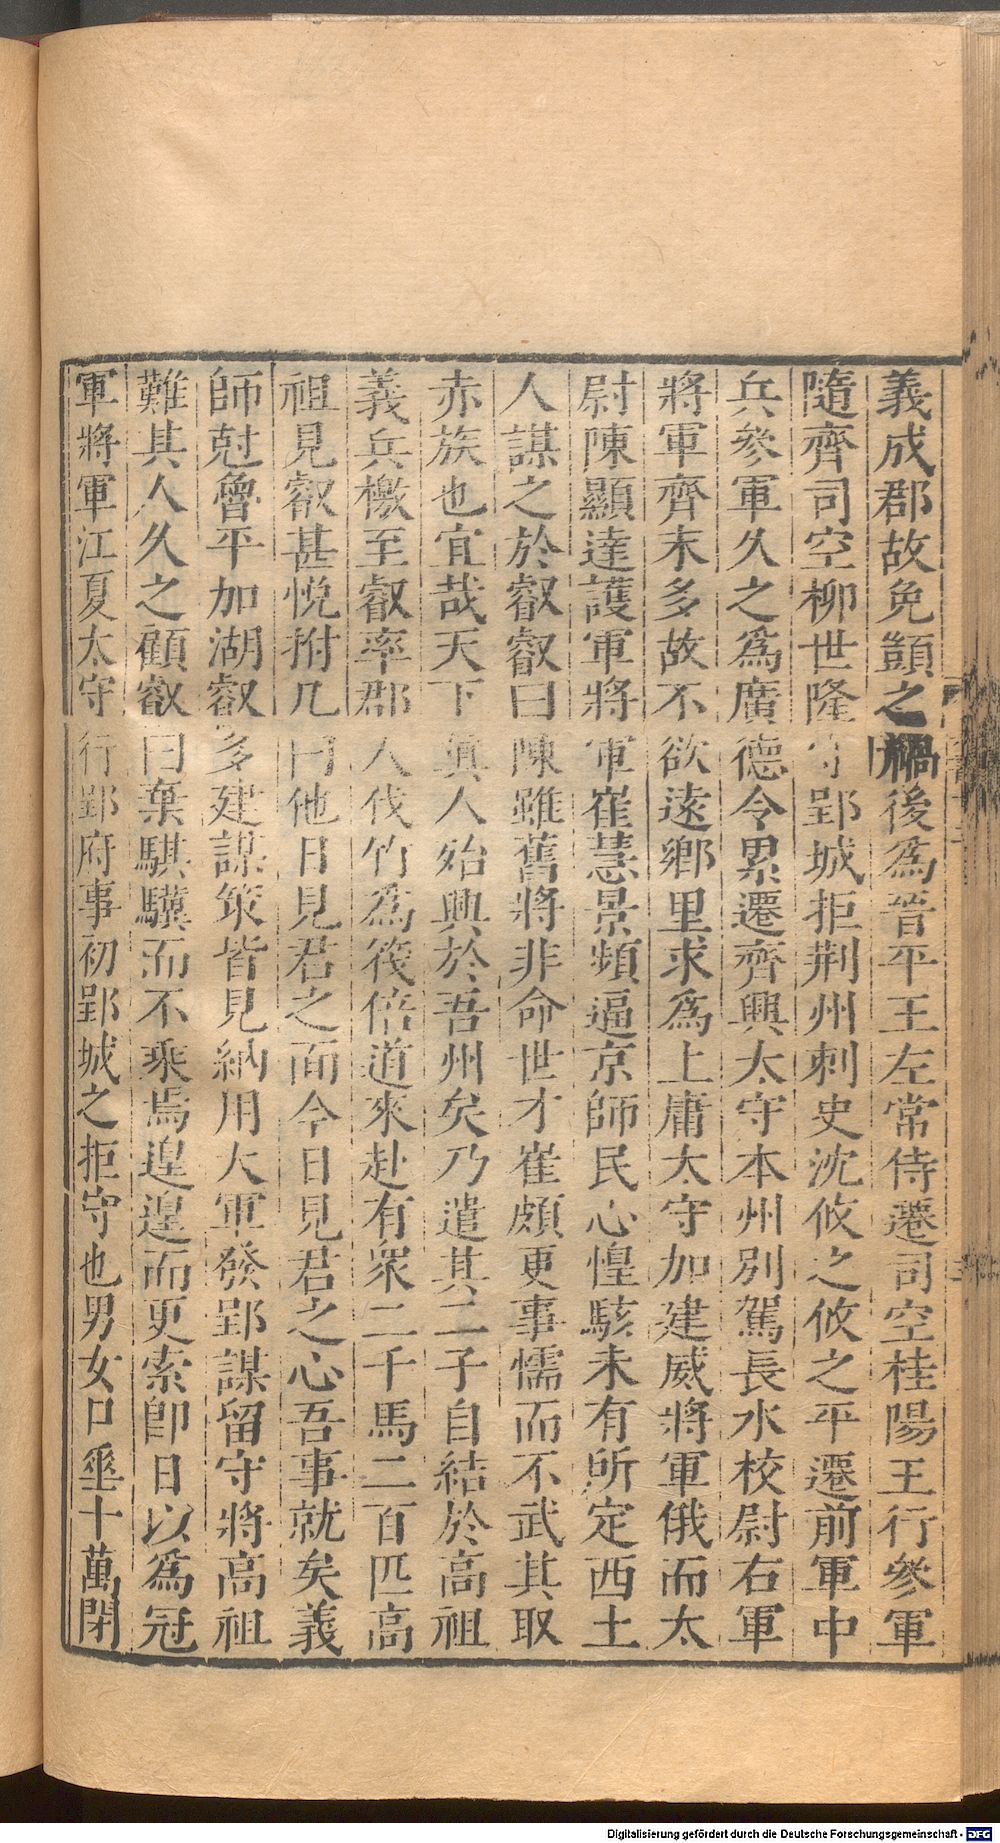 義成郡故免顗之禍後爲晉平王左常侍遷司空桂陽王行參軍
隨齊司空柳世隆守郢城拒荆州刺史沈攸之攸之平遷前軍中
兵參軍久之爲廣德令累遷齊興太守本州別駕長水校尉右軍
將軍齊末多故不欲遠鄉里求爲上庸太守加建威將軍俄而太
尉陳顯達護軍將軍崔慧景頻逼京師民心惶駭未有所定西土
人謀之於叡叡曰陳雖舊將非命世才崔頗更事懦而不武其取
赤族也宜哉天下真人殆興於吾州矣乃遣其二子自結於高祖
義兵檄至叡率郡人伐竹爲筏倍道來赴有衆二千馬二百匹高
祖見叡甚悅拊几曰他日見君之面今日見君之心吾事就矣義
師尅魯平加湖叡多建謀策皆見納用大軍發郢謀留守將高祖
難其人久之顧叡曰棄騏驥而不乘焉遑遑而更索卽日以爲冠
軍將軍江夏太守行郢府事初郢城之拒守也男女口垂十萬閉
Digitalisierung gefördert durch die Deutsche Forschungsgemeinschaft - DFG